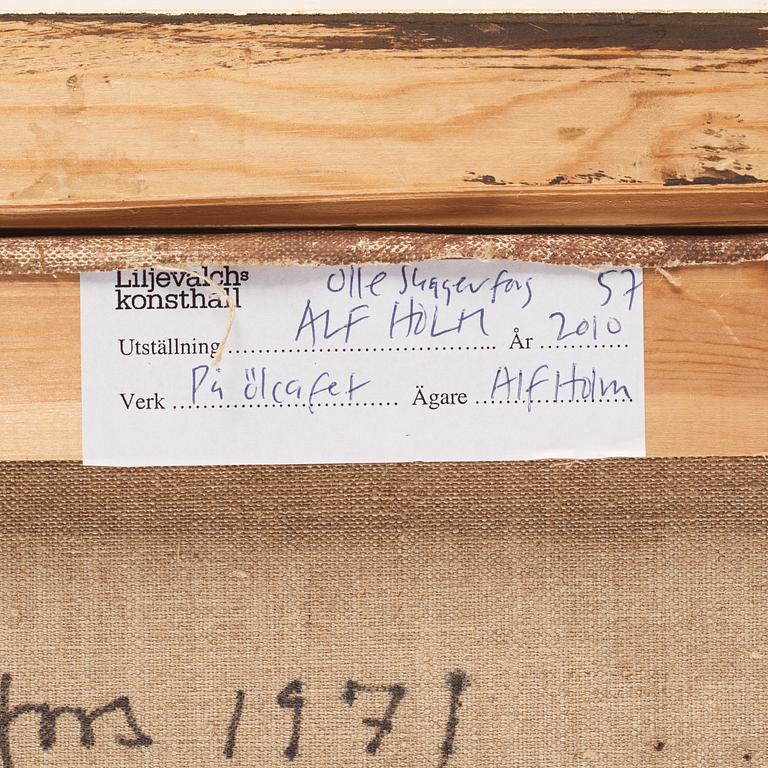 Liljevalchs Olle Skagerfors 57
konsthall
Utställning ALF HOLM År 2010
Verk På ölcafet Ägare Alf Holm
fors 1971